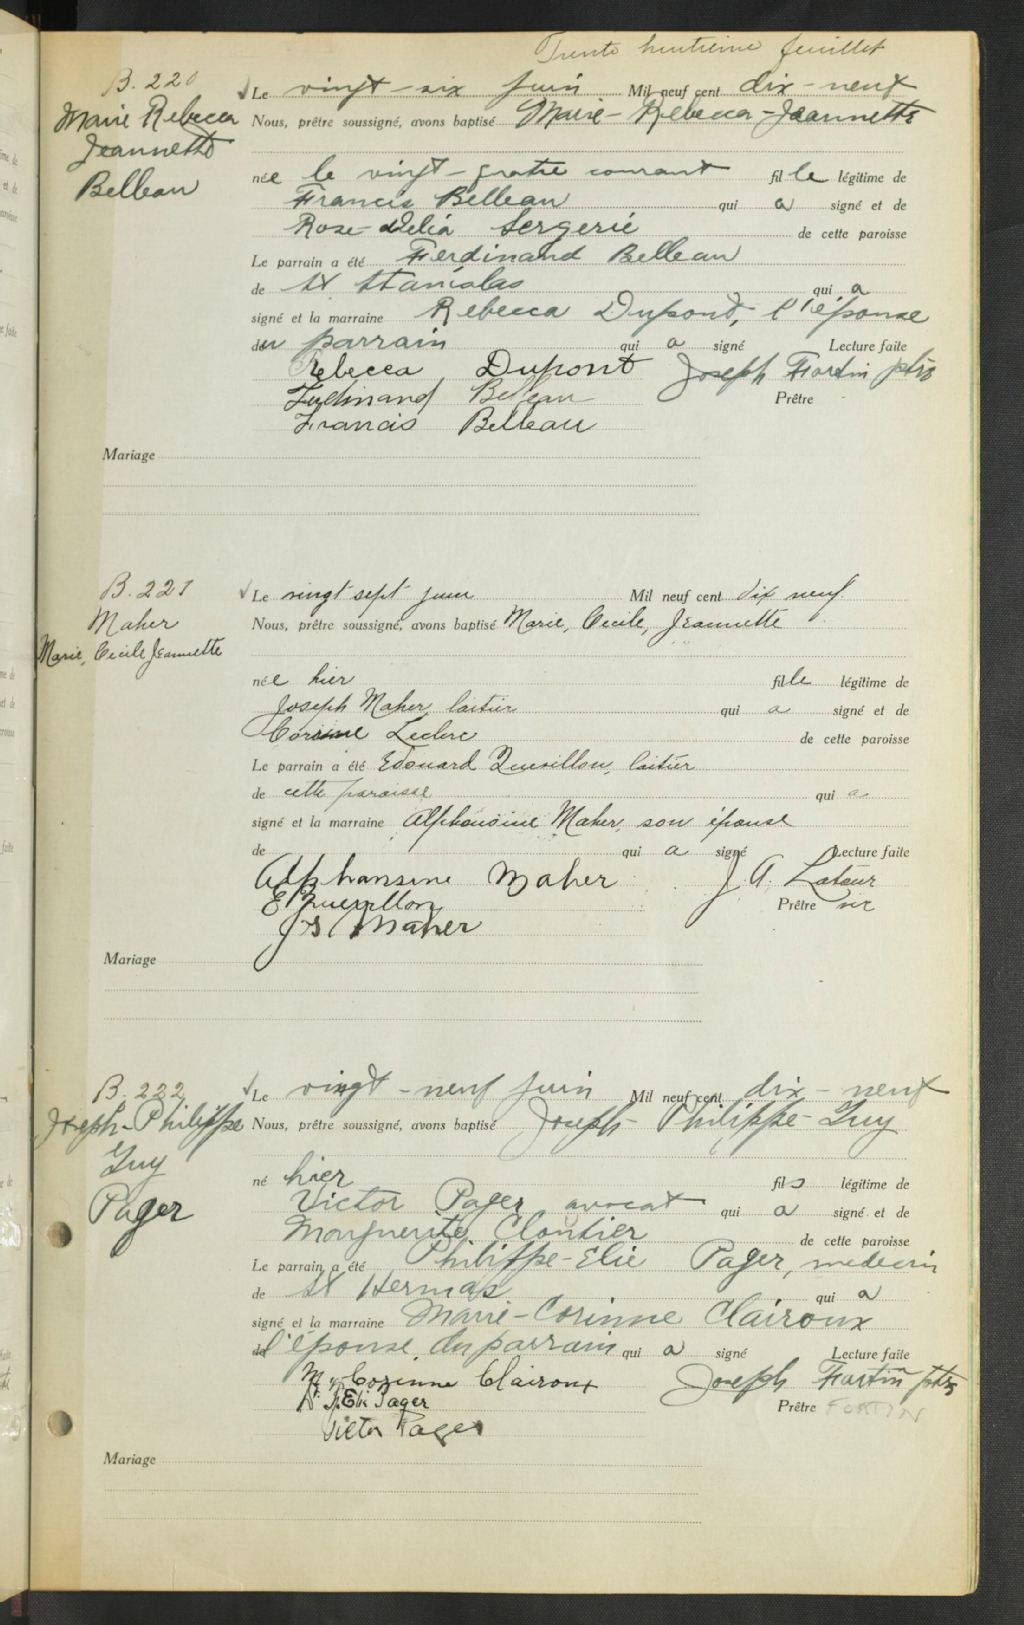 Trente huitieme feuillet
B. 220
Marie Rebecca
Jeannette
Belleau
Le vingt-six juin Mil neuf cent dix-neuf
Nous, prêtre soussigné, avons baptisé Marie-Rebecca-Jeannette
née le vingt-quatre courant fille légitime de
Francis Belleau qui a signé et de
Rose-Délia Sergerie de cette paroisse
Le parrain a été Ferdinand Belleau
de St Stanislas qui a
signé et la marraine Rebecca Dupont, l'épouse
du parrain qui a signé Lecture faite
Rebecca Dupont Joseph Fortin ptre
Ferdinand Belleau Prêtre
Francis Belleau
Mariage
B. 221
Maher
Marie, Cecile Jeannette
Le vingt sept juin Mil neuf cent dix neuf
Nous, prêtre soussigné, avons baptisé Marie, Cecile, Jeannette
née hier fille légitime de
Joseph Maher, laitier qui a signé et de
Corinne Leclerc de cette paroisse
Le parrain a été Edouard Quevillon, laitier
de cette paroisse qui a
signé et la marraine Alphonsine Maher, son épouse
de qui a signé Lecture faite
Alphonsine Maher J. A. Latour
E Quevillon Prêtre vic
Js Maher
Mariage
B. 222
Joseph-Philippe
Guy
Pager
Le vingt-neuf juin Mil neuf cent dix-neuf
Nous, prêtre soussigné, avons baptisé Joseph-Philippe-Guy
né hier fils légitime de
Victor Pager avocat qui a signé et de
Marguerite Cloutier de cette paroisse
Le parrain a été Philippe-Elie Pager, medecin
de St Hermas qui a
signé et la marraine Marie-Corinne Clairoux
de l'épouse du parrain qui a signé Lecture faite
M. Corinne Clairoux Joseph Fortin ptre
Dr. P. Elie Pager Prêtre FORTIN
Victor Pager
Mariage